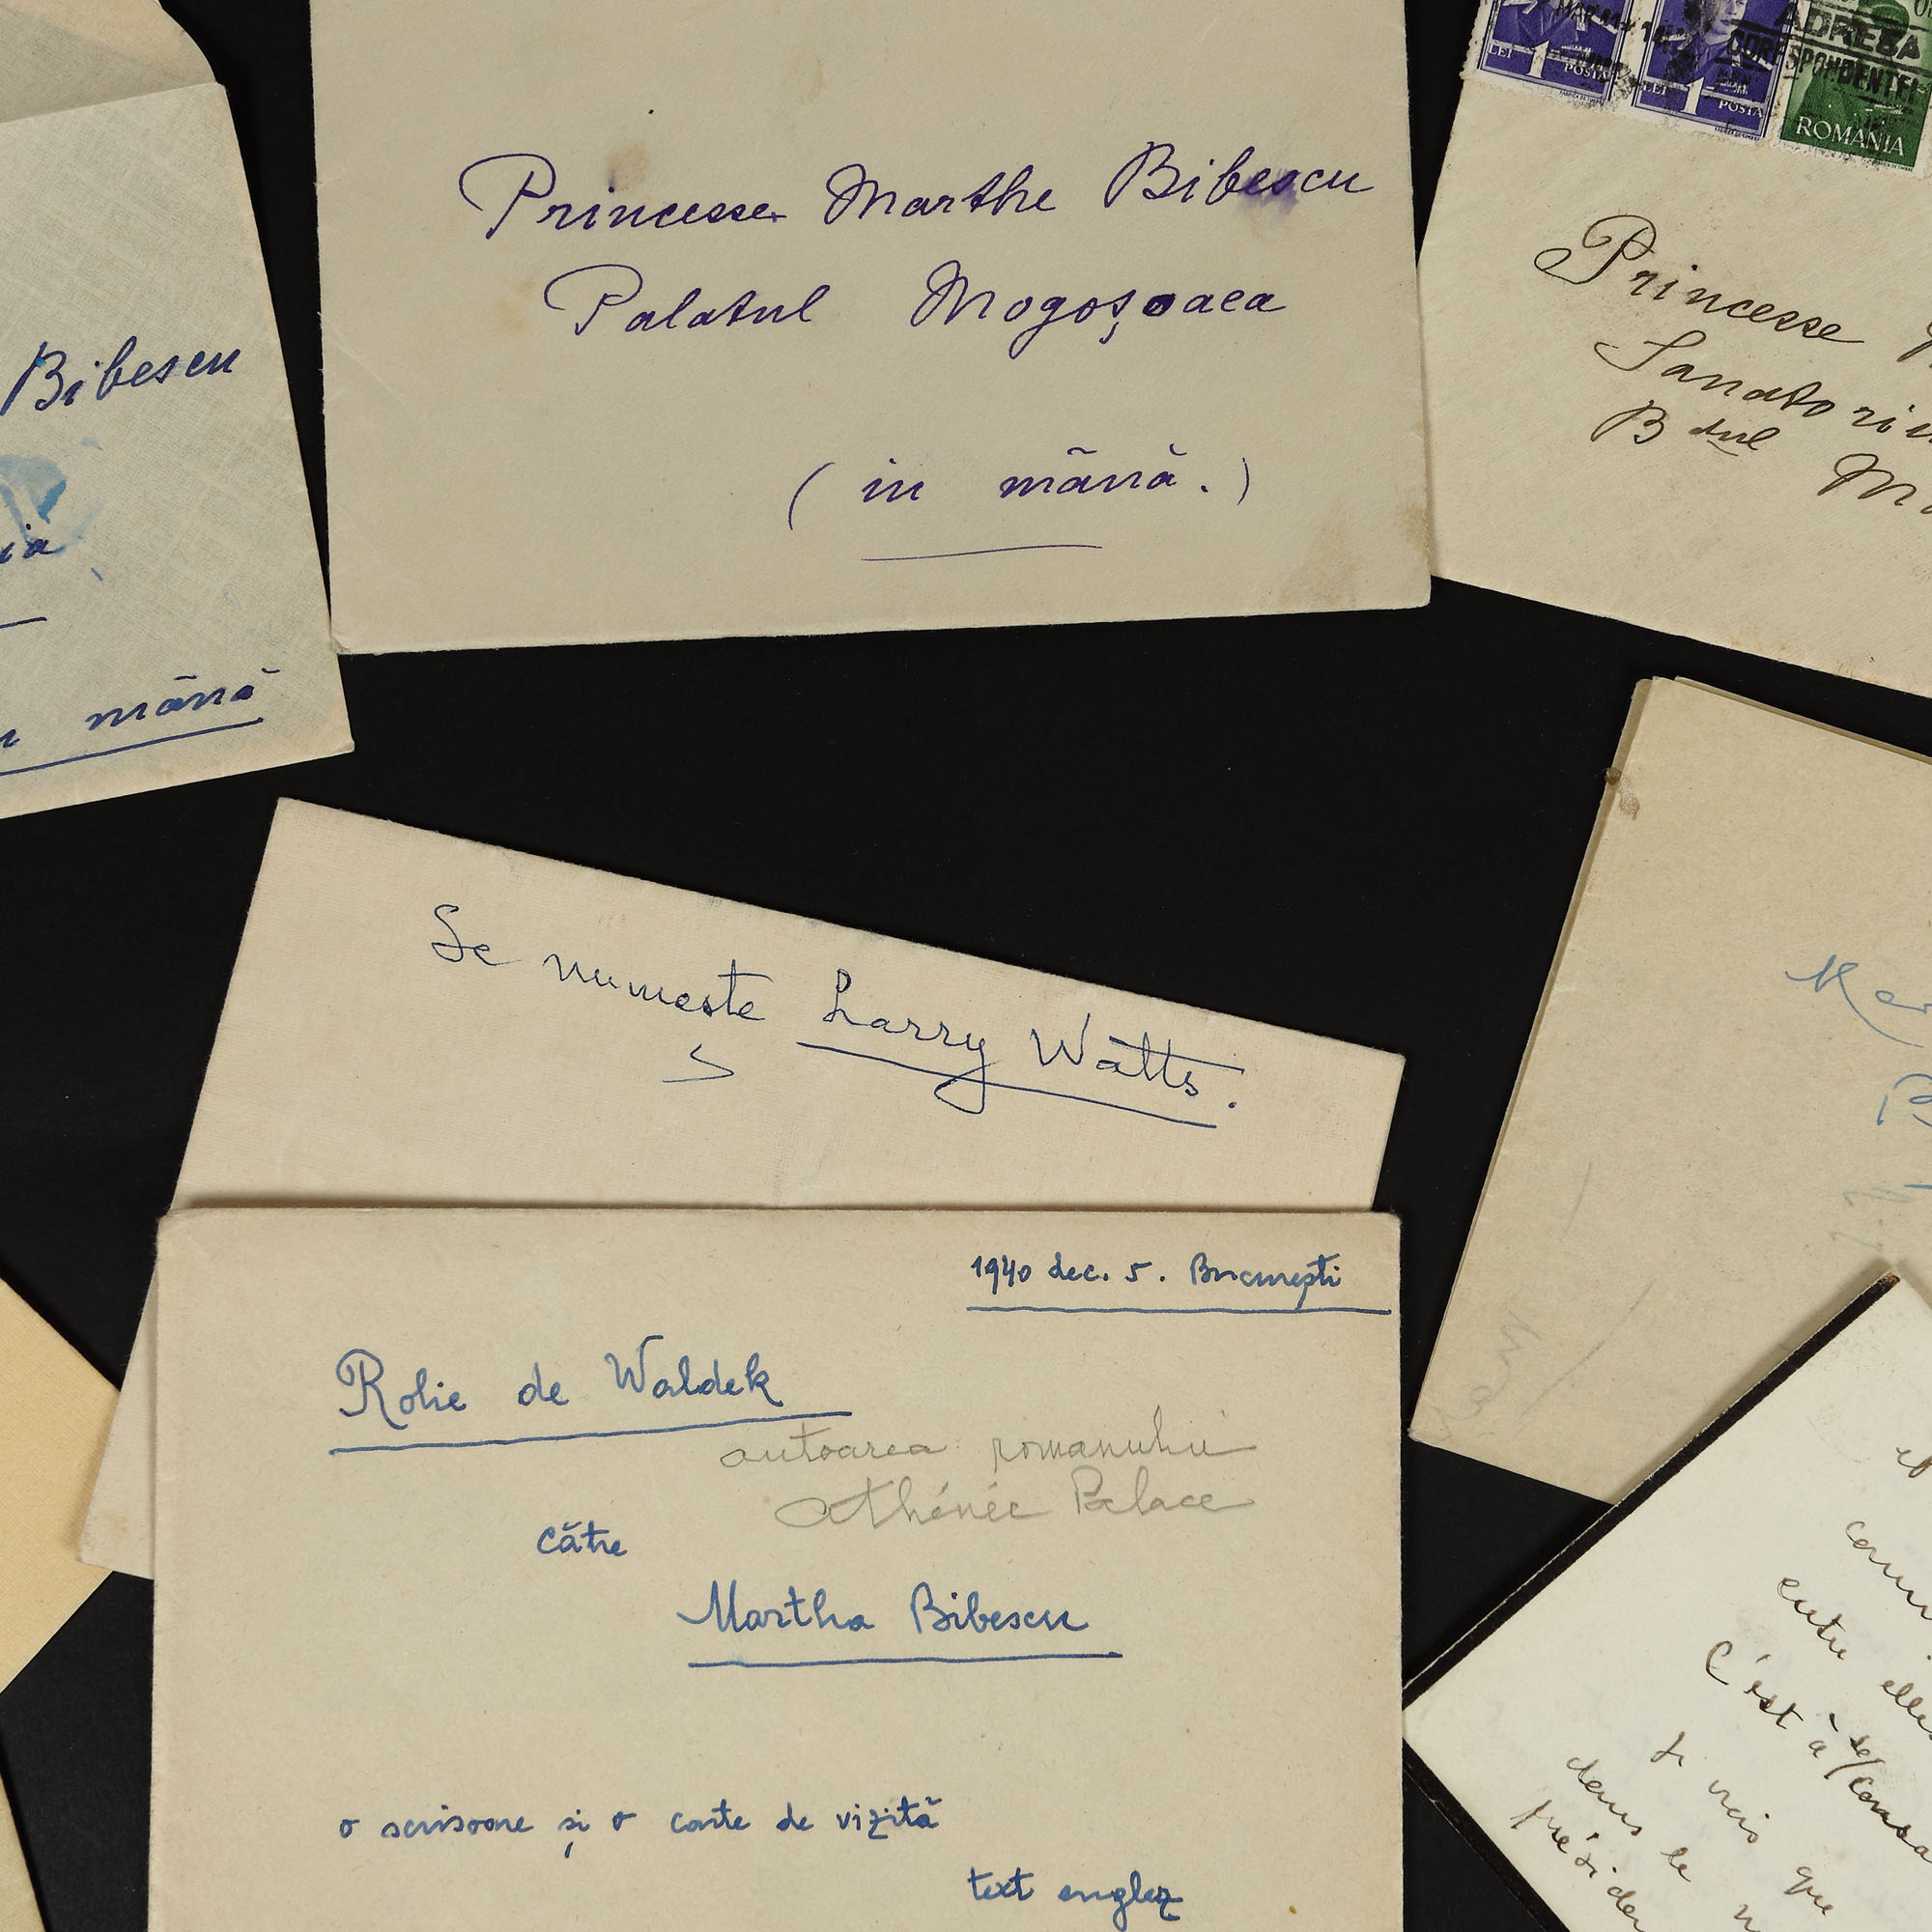 Bibescu
mână
Princesse Marthe Bibescu
Palatul Mogoșoaea
(in mână.)
LEI 1 POSTA
LEI 1 POSTA
ADRESA
CORESPONDENTEI
ROMANIA
Princesse
Bdul
Se numeste Larry Watts.
1940 dec. 5. București
Rolie de Waldek
autoarea romanului
Athénée Palace
către
Martha Bibescu
o scrisoare și o carte de vizită
text englez
entre elles
C'est à
Je vais que
dans le